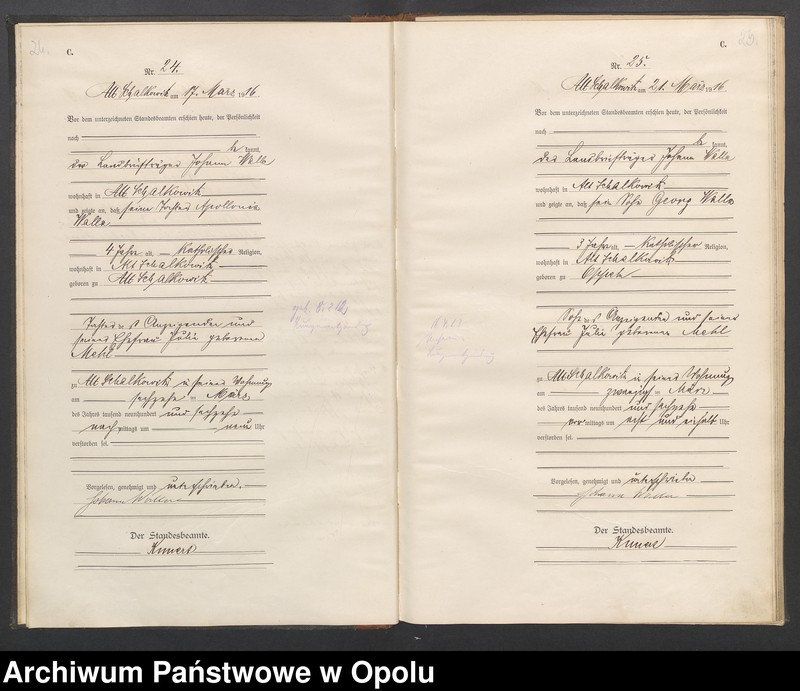 C.
Nr. 24.
Alt Schalkowitz am 17. März 1916
Vor dem unterzeichneten Standesbeamten erschien heute, der Persönlichkeit
nach
be kannt,
der Landbriefträger Johann Walla
wohnhaft in Alt Schalkowitz
und zeigte an, daß seine Tochter Apollonia
Walla
4 Jahre alt, katholischer Religion,
wohnhaft in Alt Schalkowitz
geboren zu Alt Schalkowitz
Tochter des Anzeigenden und
seiner Ehefrau Julie geborene
Mehl
zu Alt Schalkowitz in seiner Wohnung
am sechzehn ten März
des Jahres tausend neunhundert und sechzehn
nach mittags um neun Uhr
verstorben sei.
Vorgelesen, genehmigt und unterschrieben.
Johann Wollna
Der Standesbeamte.
Kunert
C.
Nr. 25.
Alt Schalkowitz am 21. März 1916
Vor dem unterzeichneten Standesbeamten erschien heute, der Persönlichkeit
nach
be kannt,
der Landbriefträger Johann Walla
wohnhaft in Alt Schalkowitz
und zeigte an, daß sein Sohn Georg Walla
3 Jahre alt, katholischer Religion,
wohnhaft in Alt Schalkowitz
geboren zu Oppeln
Sohn des Anzeigenden und seiner
Ehefrau Julie geborenen Mehl
zu Alt Schalkowitz in seiner Wohnung
am zwanzig ten März
des Jahres tausend neunhundert und sechzehn
vor mittags um acht und einhalb Uhr
verstorben sei.
Vorgelesen, genehmigt und unterschrieben
Johann
Der Standesbeamte.
Kunert
Archiwum Państwowe w Opolu